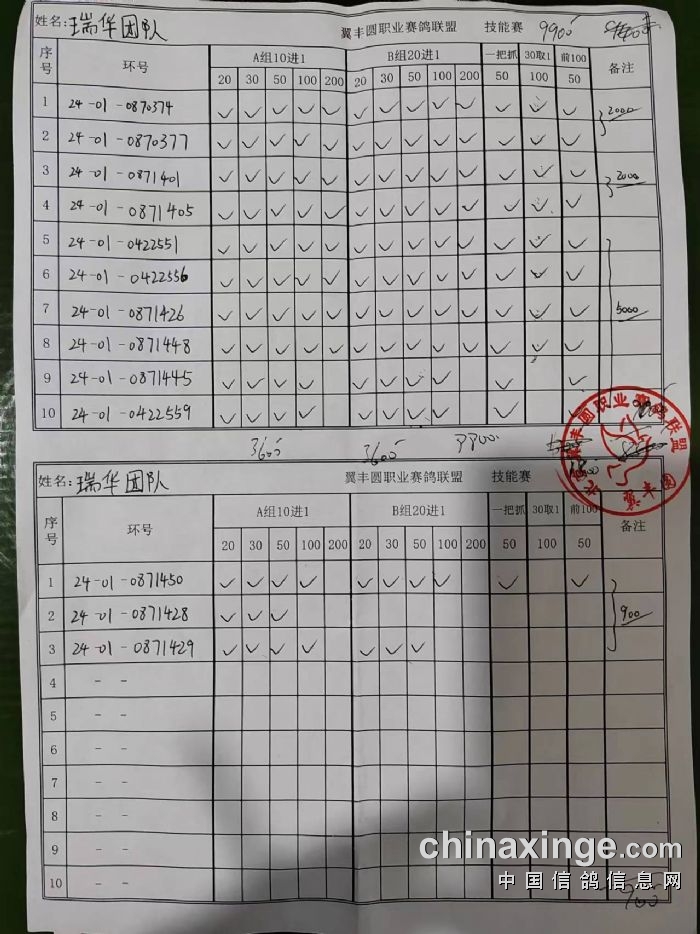 姓名:瑞华团队 翼丰圆职业赛鸽联盟 技能赛 9900
序号 环号 A组10进1 B组20进1 一把抓 30取1 前100 备注
20 30 50 100 200 20 30 50 100 200 50 100 50
1 24-01-0870374 ✓ ✓ ✓ ✓ ✓ ✓ ✓ ✓ ✓ ✓ ✓ ✓ ✓ 2000
2 24-01-0870377 ✓ ✓ ✓ ✓ ✓ ✓ ✓ ✓ ✓ ✓ ✓ ✓ ✓
3 24-01-0871401 ✓ ✓ ✓ ✓ ✓ ✓ ✓ ✓ ✓ ✓ ✓ ✓ ✓ 2000
4 24-01-0871405 ✓ ✓ ✓ ✓ ✓ ✓ ✓ ✓ ✓ ✓ ✓ ✓ ✓
5 24-01-0422551 ✓ ✓ ✓ ✓ ✓ ✓ ✓ ✓ ✓ ✓ ✓ ✓ ✓
6 24-01-0422556 ✓ ✓ ✓ ✓ ✓ ✓ ✓ ✓ ✓ ✓ ✓ ✓ ✓
7 24-01-0871426 ✓ ✓ ✓ ✓ ✓ ✓ ✓ ✓ ✓ ✓ ✓ ✓ ✓ 5000
8 24-01-0871448 ✓ ✓ ✓ ✓ ✓ ✓ ✓ ✓ ✓ ✓ ✓ ✓ ✓
9 24-01-0871445 ✓ ✓ ✓ ✓ ✓ ✓ ✓ ✓ ✓ ✓
10 24-01-0422559 ✓ ✓ ✓ ✓ ✓ ✓ ✓ ✓ ✓ ✓
3600 3600
翼丰圆职业赛鸽联盟
翼丰圆
姓名:瑞华团队 翼丰圆职业赛鸽联盟 技能赛
序号 环号 A组10进1 B组20进1 一把抓 30取1 前100 备注
20 30 50 100 200 20 30 50 100 200 50 100 50
1 24-01-0871450 ✓ ✓ ✓ ✓ ✓ ✓ ✓ ✓ ✓ ✓
2 24-01-0871428 ✓ ✓ ✓ 900
3 24-01-0871429 ✓ ✓ ✓ ✓ ✓ ✓ ✓
4 - -
5 - -
6 - -
7 - -
8 - -
9 - -
10 - -
chinaxinge.com
中国信鸽信息网